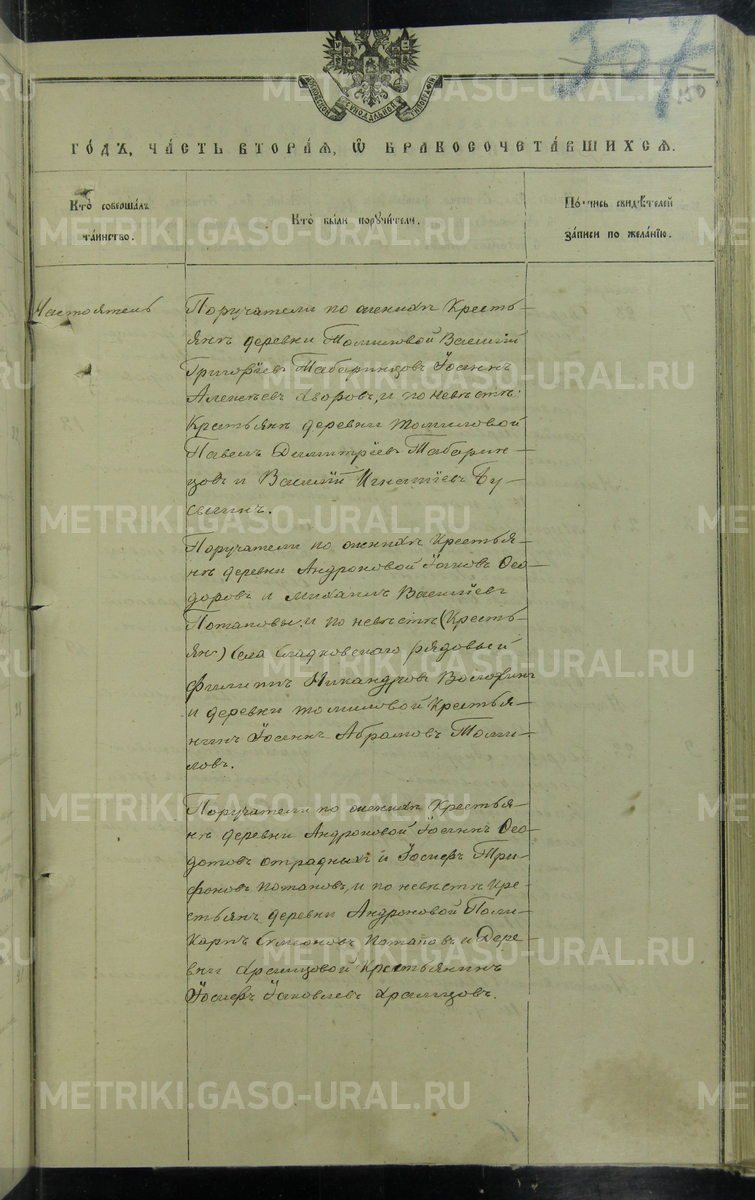 307
150
ГО́ДЪ, ЧА́СТЬ ВТОРА́Я, Ѡ БРАКОСОЧЕТА́ВШИХСѦ.
Кто̀ соверша́лъ
та́инство.
Кто̀ бы́ли пору́чители.
По́дпись свидѣ́телей
за́писи по жела́нїю.
Настоятель
Поручатели по женихѣ Кресть-
янѣ деревни Томиловой Василій
Григоріевъ Табаринцовъ Іоаннъ
Алексѣевъ Хворовъ, и по невѣстѣ:
Крестьянѣ деревни Томиловой
Павелъ Димитріевъ Табарин-
цовъ и Василій Игнатіевъ Бу-
сыгинъ.
Поручатели по женихѣ Крестья-
нѣ деревни Андроновой Іаковъ Ѳео-
доровъ и Михаилъ Василіевъ
Потаповы: и по невѣстѣ (Кресть-
янѣ) села Сладковскаго рядовый
Филиппъ Никандровъ Волокинъ
и деревни Томиловой Крестья-
нинъ Іоаннъ Абрамовъ Томи-
ловъ.
Поручатели по женихѣ Крестья-
нѣ деревни Андроновой Іоаннъ Ѳео-
дотовъ Отрадныхъ и Іосифъ Три-
фоновъ Потаповъ, и по невѣстѣ Кре-
стьянѣ деревни Андроновой Поли-
карпъ Симеоновъ Потаповъ и Дере-
вни Храмцовой Крестьянинъ
Іосифъ Іаковлевъ Храмцовъ.
METRIKI.GASO-URAL.RU